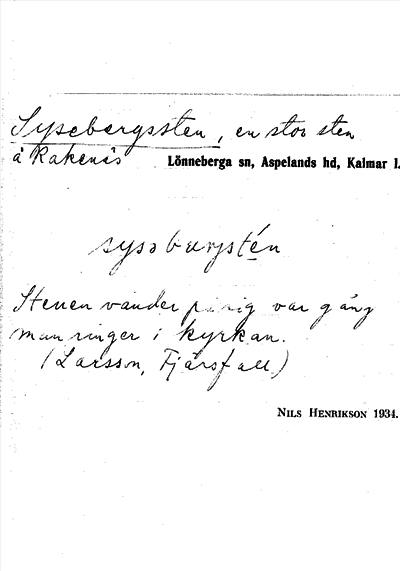 Sysebergssten, en stor sten
å Rakenäs Lönneberga sn, Aspelands hd, Kalmar l.
Stenen vänder på sig var gång
man ringer i kyrkan.
(Larsson, Fjärsfall)
NILS HENRIKSON 1934.